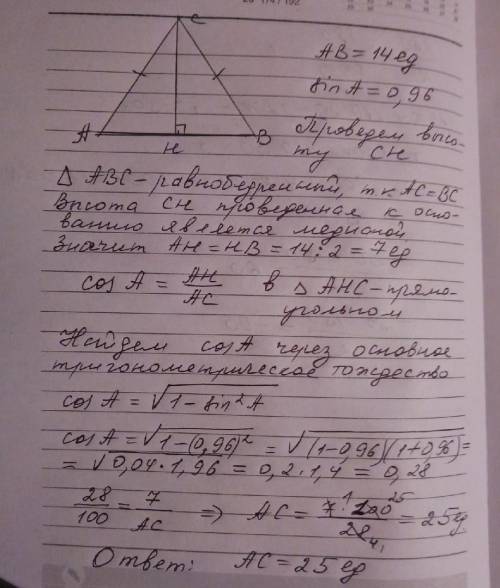 C
AB = 14 ед
sin A = 0,96
A H B
Проведем высо-
ту CH
△ ABC - равнобедренный, т к AC = BC
Высота CH проведенная к осно-
ванию является медианой
Значит AH = HB = 14 : 2 = 7 ед
cos A = AH/AC в △ AHC - прямо-
угольном
Найдем cos A через основное
тригонометрическое тождество
cos A = √(1 - sin² A)
cos A = √(1 - (0,96)²) = √((1-0,96)(1+0,96)) =
= √(0,04 · 1,96) = 0,2 · 1,4 = 0,28
28/100 = 7/AC ⇒ AC = 7 ¹ · 100 ²⁵ / 28 ₄ ₁ = 25 ед.
Ответ: AC = 25 ед